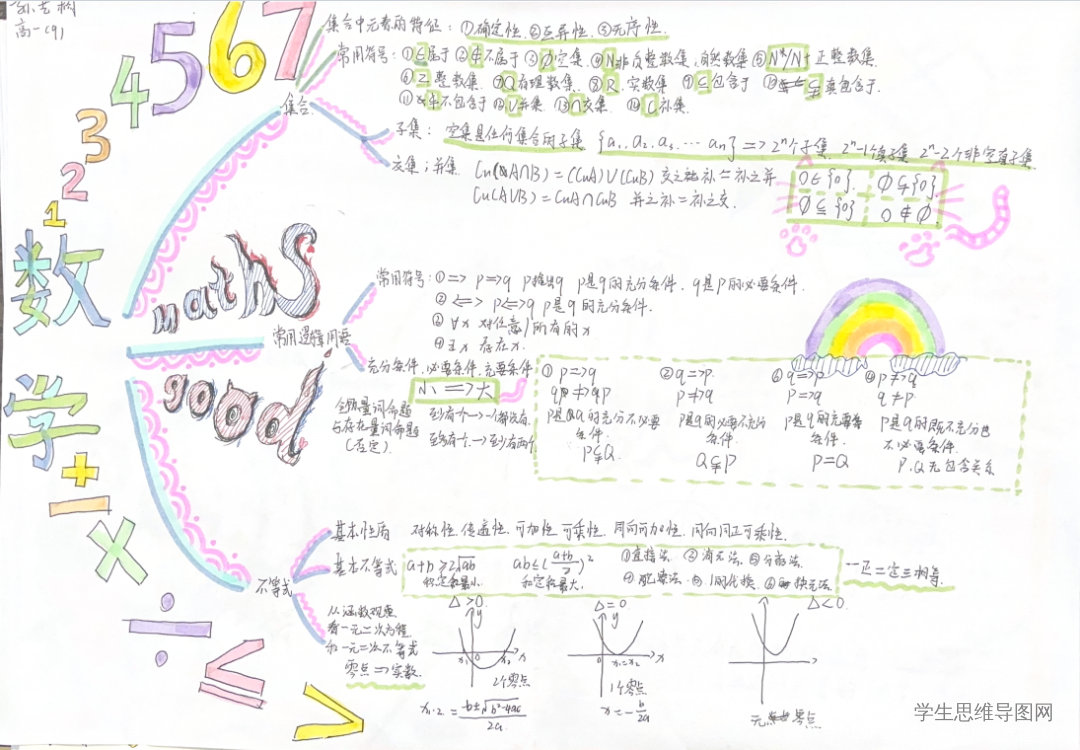 高一(9)
1 2 3 4 5 6 7
数学
+ - × ÷ ≤ >
maths
good
集合
集合中元素的特征：①确定性.②互异性.③无序性.
常用符号：①∈属于②∉不属于③∅空集.④N非负整数集,自然数集⑤N*/N+正整数集.
⑥Z整数集.⑦Q有理数集.⑧R.实数集⑨⊆包含于⑩⫋真包含于.
⑪⊈不包含于⑫∪并集.⑬∩交集.⑭∁补集.
子集：空集是任何集合的子集 {a₁,a₂,a₃.…an}=>2ⁿ个子集.2ⁿ-1个真子集 2ⁿ-2个非空真子集
交集；并集 Cu(A∩B)=(CuA)∪(CuB) 交之补=补之并
Cu(A∪B)=CuA∩CuB 并之补=补之交.
0∈{0}. ∅⫋{0}.
∅⊆{0} 0∉∅
常用逻辑用语
常用符号：①=> p=>q p推出q p是q的充分条件.q是p的必要条件.
②<=> p<=>q p是q的充分条件.
③∀x 对任意/所有的x
④∃x 存在x.
充分条件.必要条件.充要条件
小=>大
①p=>q ②q=>p. ③q=>p ④p≠>q
q≠>p p≠>q p=>q q≠>p.
p是q的充分不必要条件. p是q的必要不充分条件. p是q的充要条件. p是q的既不充分也不必要条件.
P⫋Q Q⫋P P=Q P,Q无包含关系
全称量词命题
与存在量词命题
(否定).
至少有一个->一个都没有.
至多有一个->至少有两个
不等式
基本性质 对称性.传递性.可加性.可乘性.同向可加性.同向同正可乘性.
基本不等式 a+b≥2√ab ab≤(a+b/2)² ①直接法.②消元法.③分离法.
积定和最小. 和定积最大. ④配凑法.⑤1的代换.⑥换元法.
一正二定三相等.
从函数观点
看一元二次方程
和一元二次不等式
零点=>实数.
Δ>0. Δ=0 Δ<0.
y x₁ 0 x₂ x
y 0 x₁=x₂ x
2个零点 1个零点 无零点
x₁.₂=-b±√b²-4ac/2a. x=-b/2a
学生思维导图网